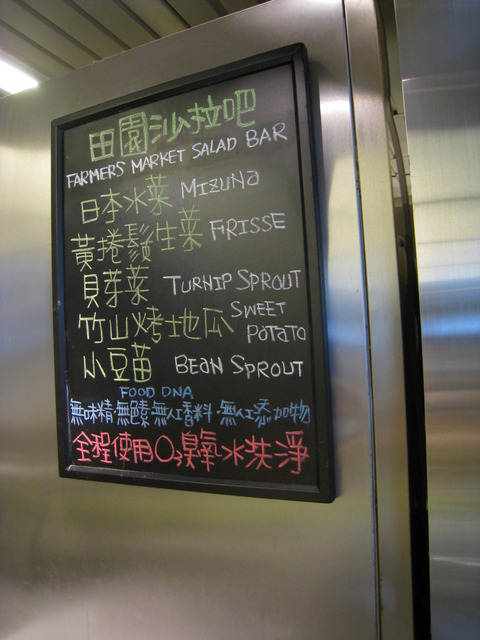 田園沙拉吧
FARMERS MARKET SALAD BAR
日本水菜 MIZUNA
黃捲鬚生菜 FRISSE
貝芽菜 TURNIP SPROUT
竹山烤地瓜 SWEET POTATO
小豆苗 BEAN SPROUT
FOOD DNA
無味精·無色素·無人工香料·無人工添加物
全程使用O₃臭氧水洗淨